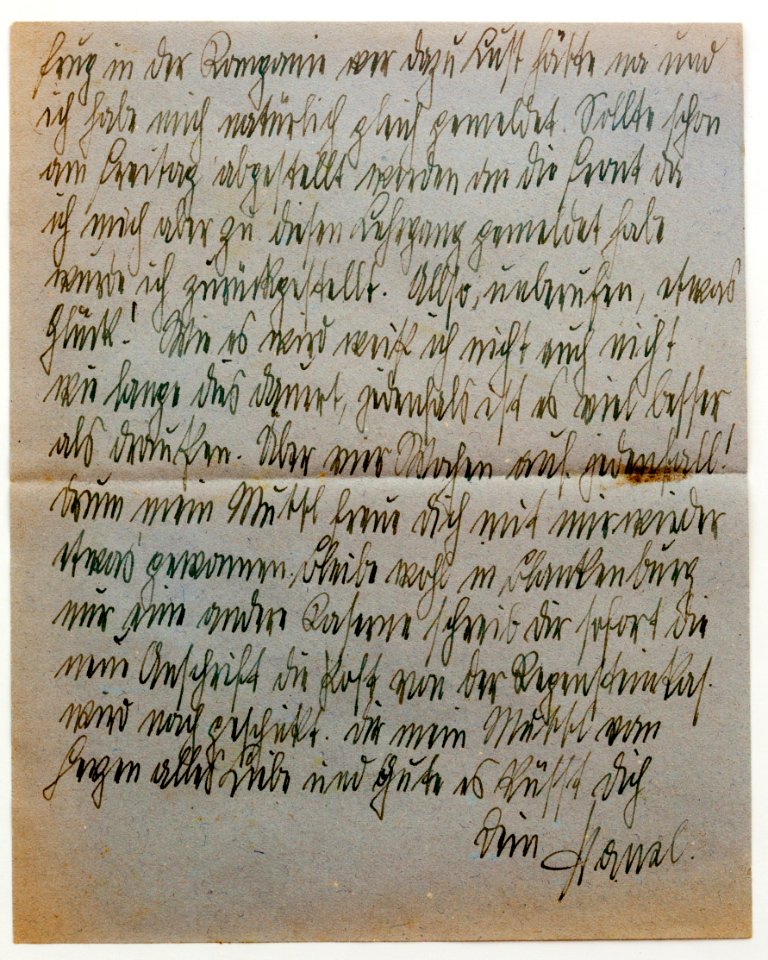 frug in der Kompanie wer dazu Lust hätte na und
ich habe mich natürlich gleich gemeldet. Sollte schon
am Freitag abgestellt werden an die Front da
ich mich aber zu diesen Lehrgang gemeldet habe
wurde ich zurückgestellt. Allso, unberufen, etwas
Glück! Wie es wird weiß ich nicht auch nicht
wie lange dies dauert, jedenfals ist es viel besser
als draußen. Über vier Wochen auf jedenfall!
Drum mein Muttl freue dich mit mir wieder
etwas gewonnen. Bleibe wohl in Blankenburg
nur eine andere Kaserne schreib dir sofort die
neue Anschrift die Post von der Regensteinkas.
wird nach geschikt. Dir mein Muttl vom
Herzen alles Liebe und Gute es Küsst dich
dein Hansl.